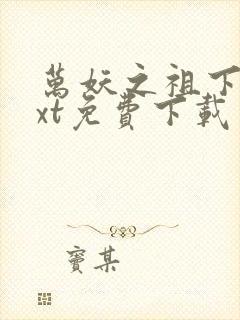 萬妖之祖下
xt免費下載
竇某